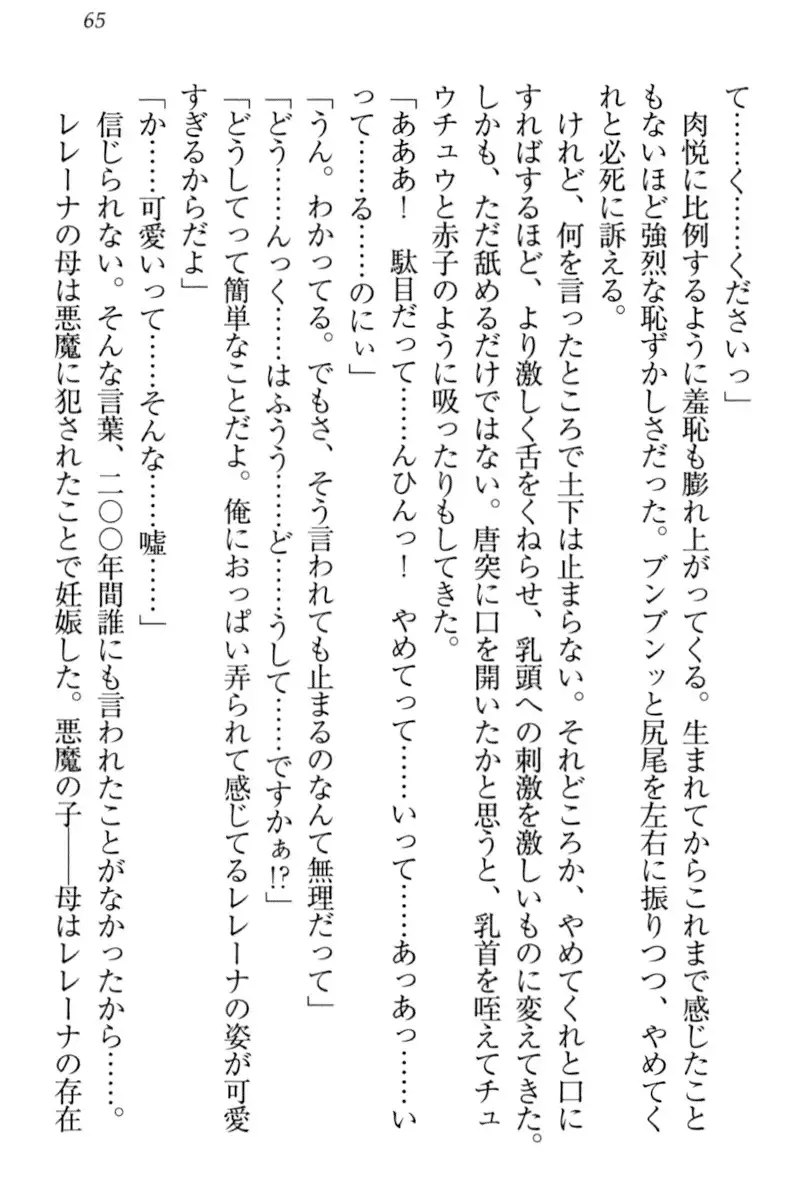 65
て……く……くださいっ」
肉悦に比例するように羞恥も膨れ上がってくる。生まれてからこれまで感じたこと
もないほど強烈な恥ずかしさだった。ブンブンッと尻尾を左右に振りつつ、やめてく
れと必死に訴える。
けれど、何を言ったところで土下は止まらない。それどころか、やめてくれと口に
すればするほど、より激しく舌をくねらせ、乳頭への刺激を激しいものに変えてきた。
しかも、ただ舐めるだけではない。唐突に口を開いたかと思うと、乳首を咥えてチュ
ウチュウと赤子のように吸ったりもしてきた。
「あああ！　駄目だって……んひんっ！　やめてって……いって……あっあっ……い
って……る……のにぃ」
「うん。わかってる。でもさ、そう言われても止まるのなんて無理だって」
「どう……んっく……はふうう……ど……うして……ですかぁ!?」
「どうしてって簡単なことだよ。俺におっぱい弄られて感じてるレレーナの姿が可愛
すぎるからだよ」
「か……可愛いって……そんな……嘘……」
信じられない。そんな言葉、二〇〇年間誰にも言われたことがなかったから……。
レレーナの母は悪魔に犯されたことで妊娠した。悪魔の子――母はレレーナの存在